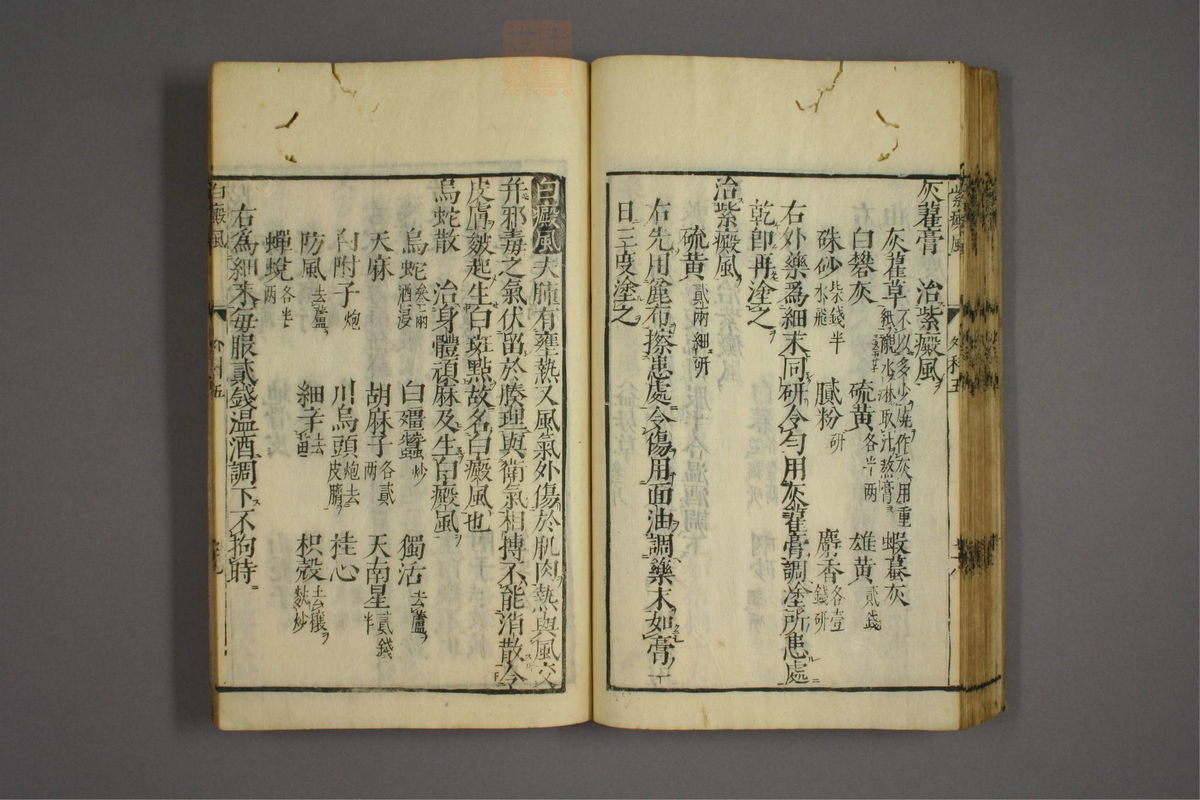 紫癜風
外科五
灰藋膏　治紫癜風
灰藋草不以多少燒作灰用重紙襯水淋取汁熬膏　蝦蟇灰
白礬灰　硫黃各半兩　雄黃貳錢
硃砂柒錢半水飛　膩粉研　麝香各壹錢研
右外藥爲細末同研令勻用灰藋膏調塗所患處
乾卽再塗之
治紫癜風
硫黃貳兩細研
右先用麄布擦患處令傷用面油調藥末如膏一
日三度塗之
白癜風夫臟有壅熱又風氣外傷於肌肉熱與風交
幷邪毒之氣伏留於腠理與衛氣相搏不能消散令
皮膚皴起生白斑點故名白癜風也
烏蛇散　治身體頑麻及生白癜風
烏蛇叁兩酒浸　白殭蠶炒　獨活去蘆
天麻　胡麻子各貳兩　天南星貳錢半
白附子炮　川烏頭炮去皮臍　桂心
防風去蘆　細辛去苗　枳殼去穰麩炒
蟬蛻各半兩
右爲細末每服貳錢溫酒調下不拘時
白癜風
外科五